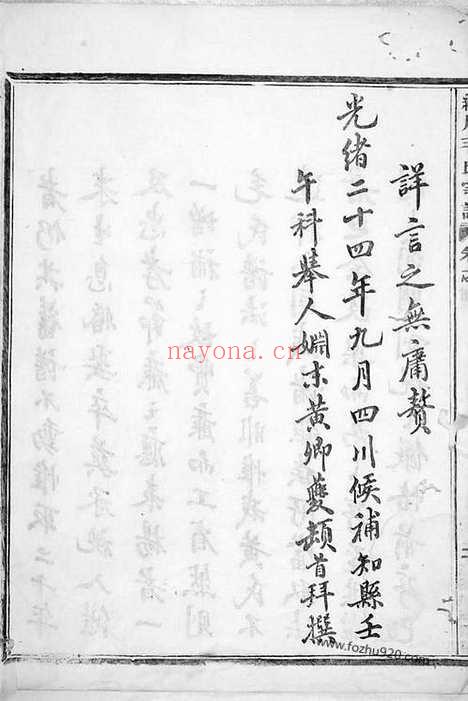 詳言之無庸贅
光緒二十四年九月四川候補知縣壬
午科舉人姻末黃卿夔頓首拜撰
nayona.cn
www.fozhu920.com